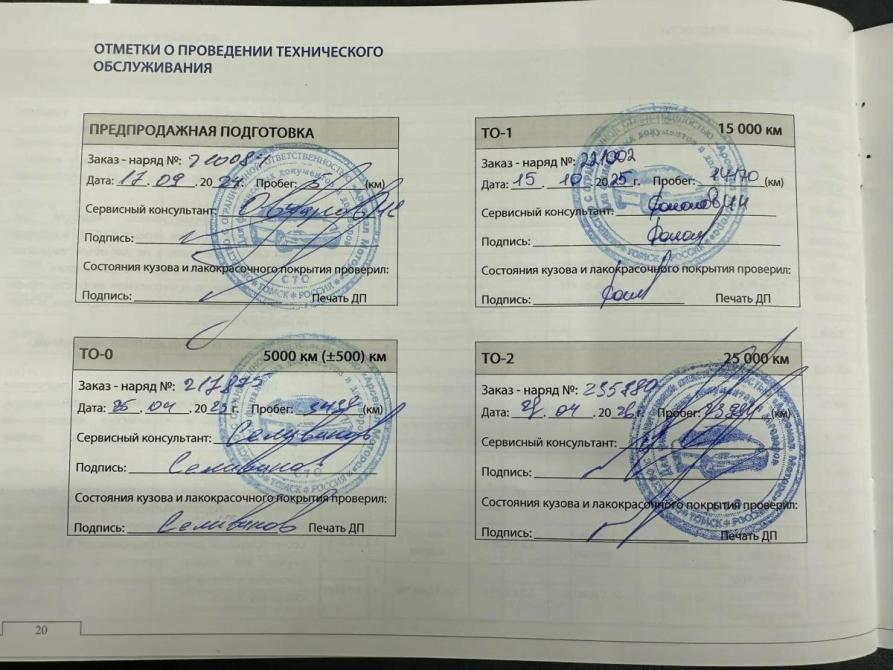 ОТМЕТКИ О ПРОВЕДЕНИИ ТЕХНИЧЕСКОГО
ОБСЛУЖИВАНИЯ
ПРЕДПРОДАЖНАЯ ПОДГОТОВКА
Заказ - наряд №:
Дата: 17 . 09 . 20 24 г. Пробег: 5 (км)
Сервисный консультант:
Подпись:
Состояния кузова и лакокрасочного покрытия проверил:
Подпись: Печать ДП
ТО-0 5000 км (±500) км
Заказ - наряд №:
Дата: 25 . 04 . 20 25 г. Пробег: (км)
Сервисный консультант: Селиванов
Подпись: Селиванов
Состояния кузова и лакокрасочного покрытия проверил:
Подпись: Селиванов Печать ДП
ТО-1 15 000 км
Заказ - наряд №: 221002
Дата: 15 . 10 . 20 25 г. Пробег: 14170 (км)
Сервисный консультант:
Подпись:
Состояния кузова и лакокрасочного покрытия проверил:
Подпись: Печать ДП
ТО-2 25 000 км
Заказ - наряд №:
Дата: . 04 . 20 26 г. Пробег: (км)
Сервисный консультант:
Подпись:
Состояния кузова и лакокрасочного покрытия проверил:
Подпись: Печать ДП
20